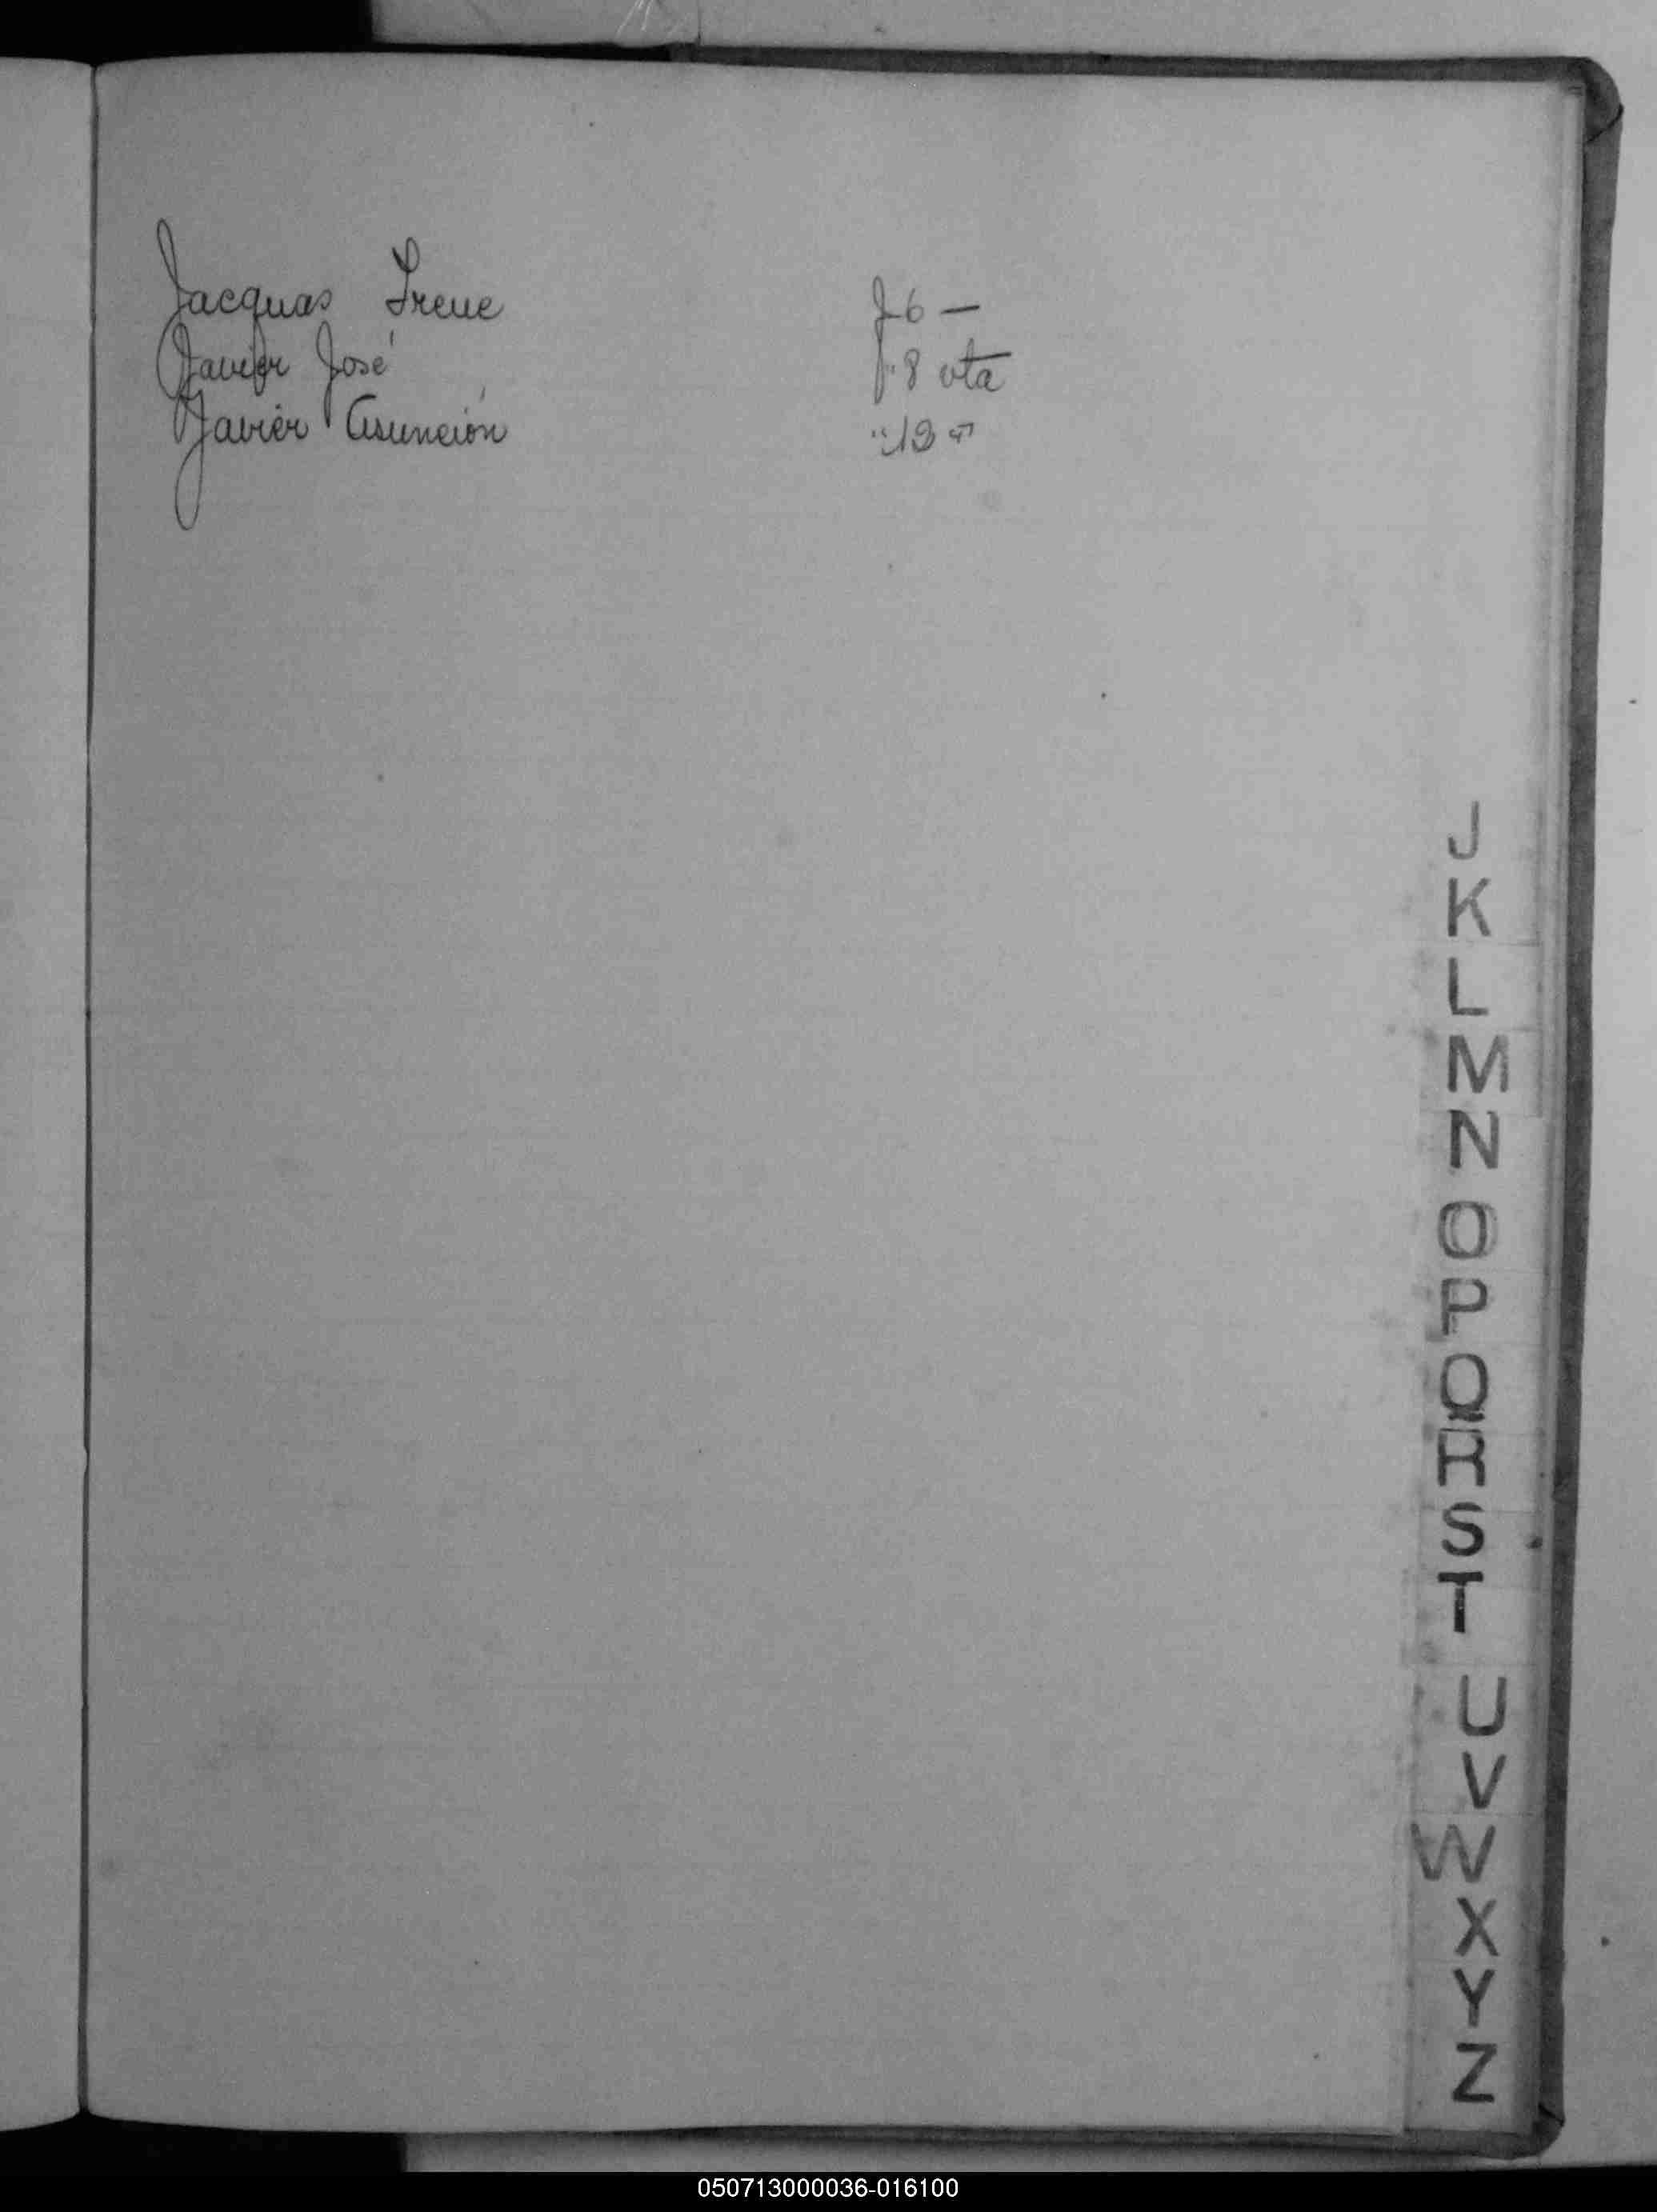 Jacquas Irene f 6 —
Javier José f. 8 vta
Javier Asunción " 13 "
J
K
L
M
N
O
P
Q
R
S
T
U
V
W
X
Y
Z
050713000036-016100